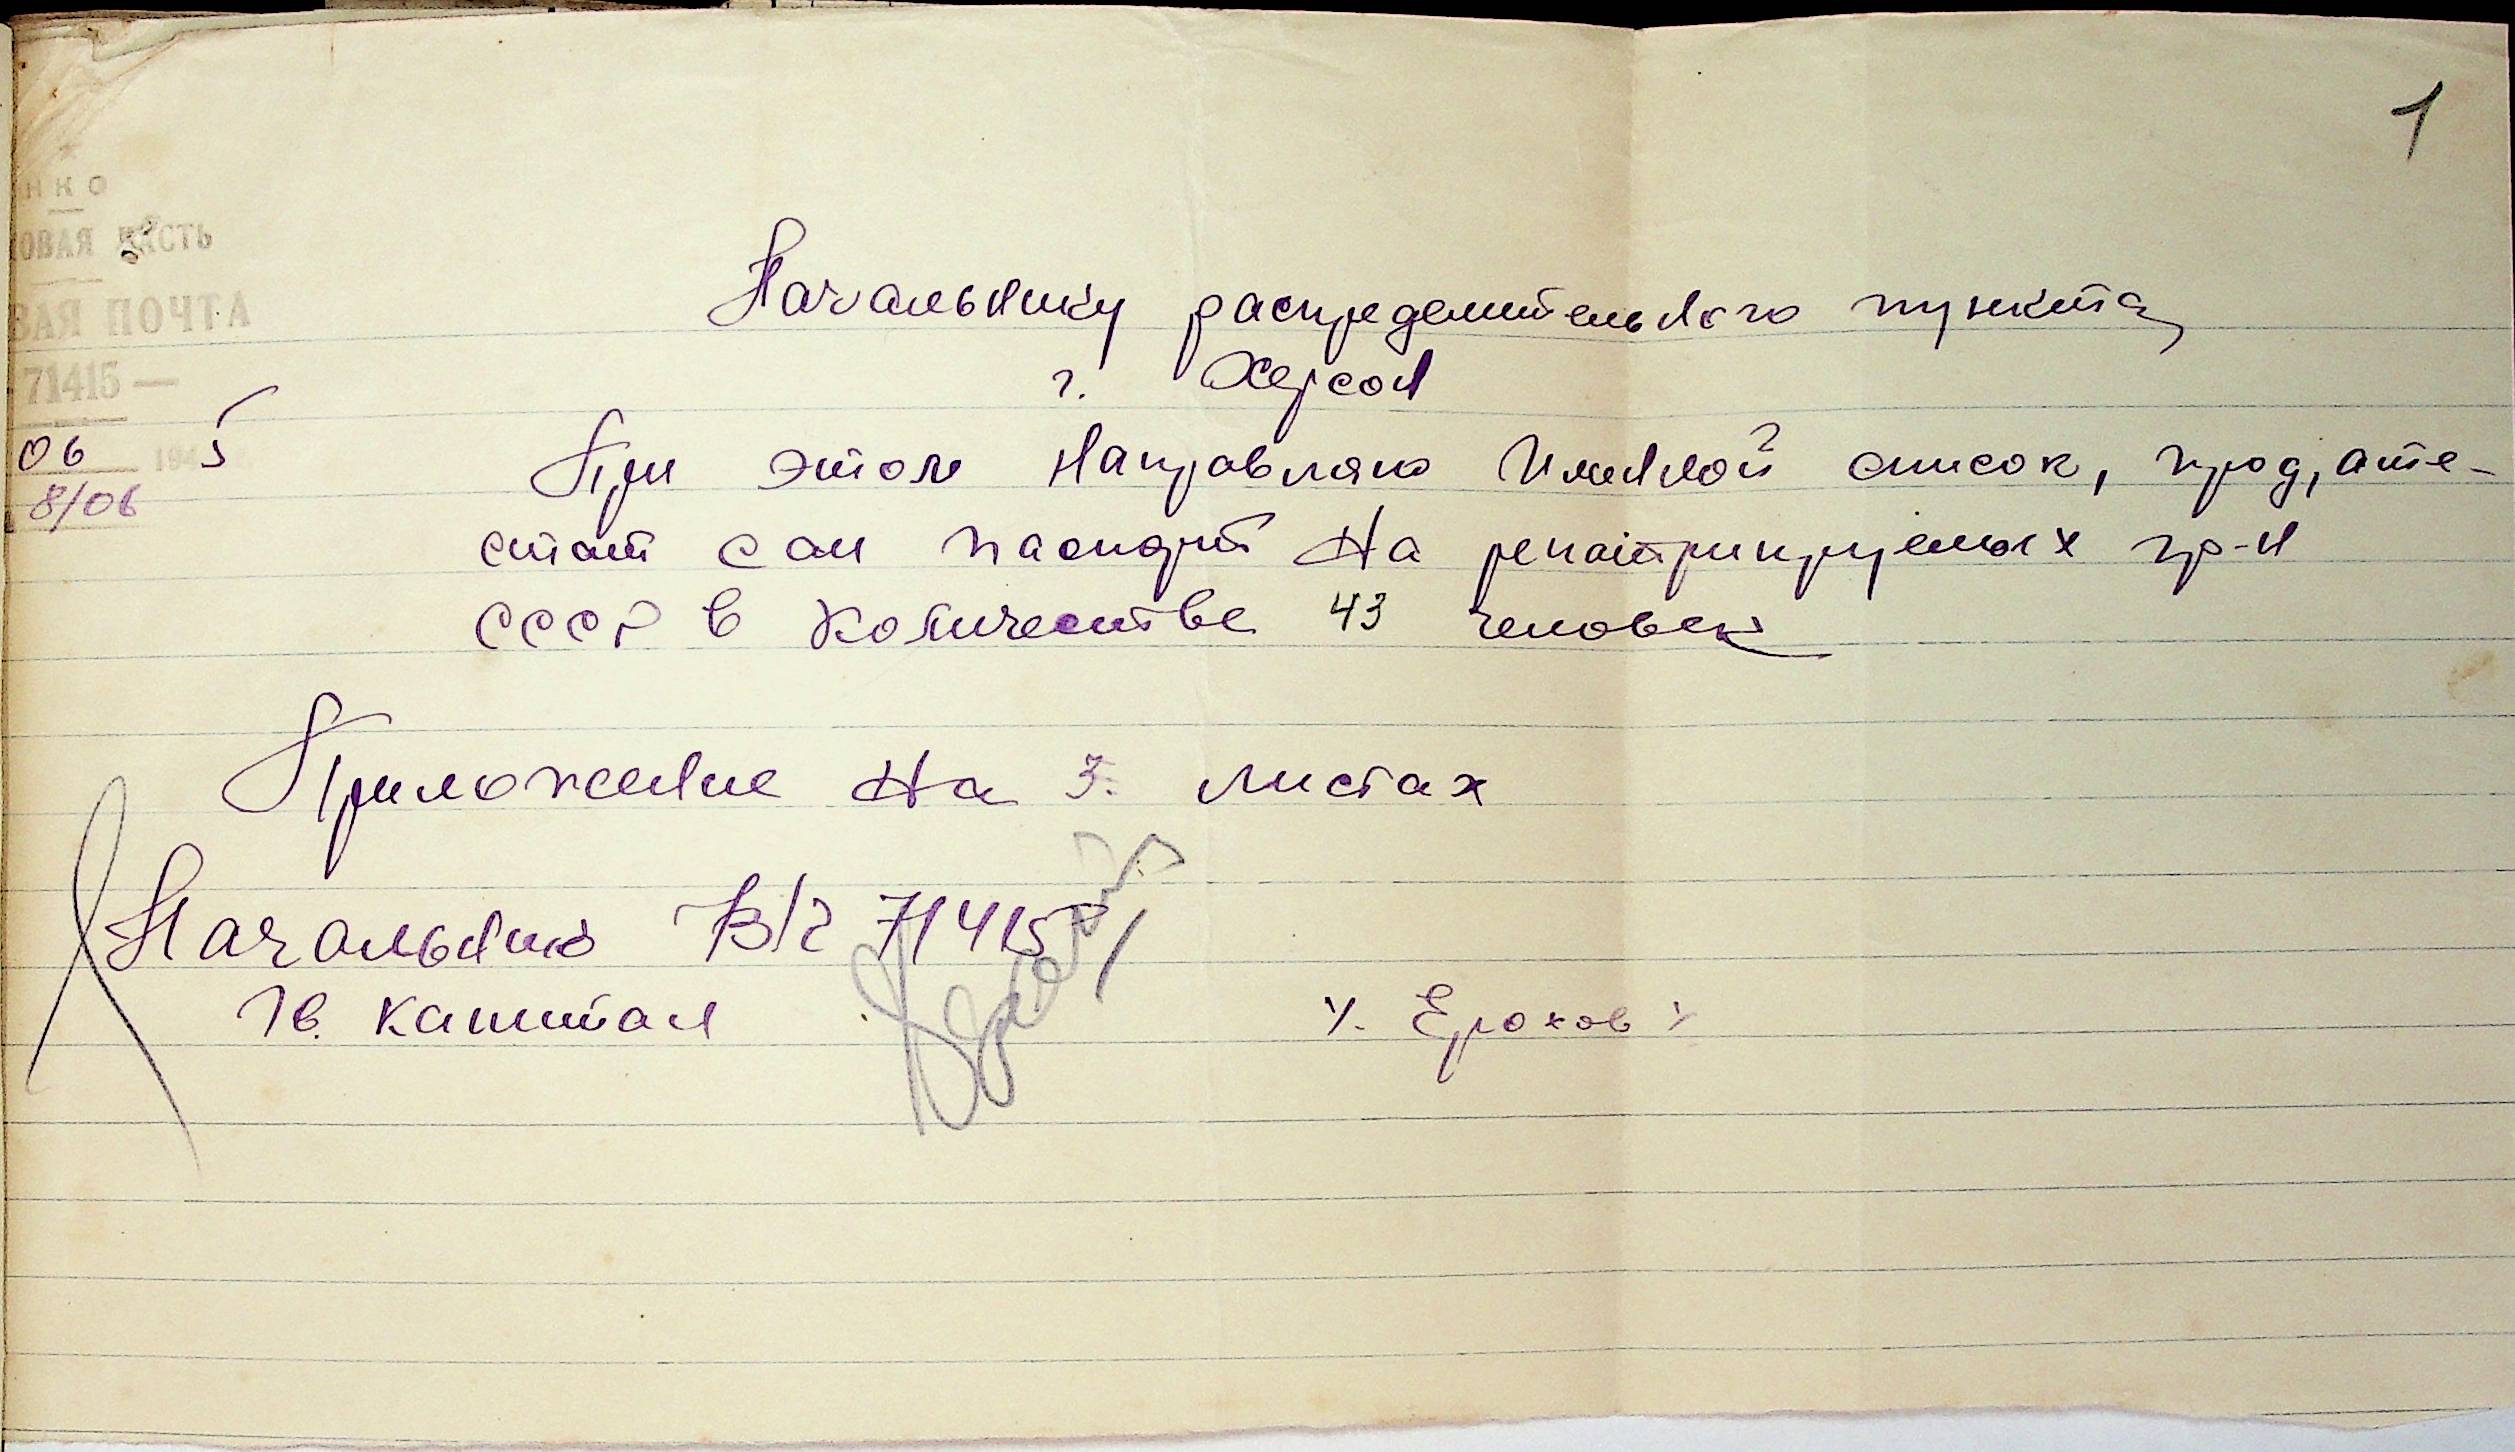 1
НКО
ОВАЯ ЧАСТЬ
ВАЯ ПОЧТА
71415 —
06 194 5
8/06
Начальнику распределительного пункта
г. Херсон
При этом направляю именной список, прод, атте-
стат сан паспорт на репатриируемых гр-н
СССР в количестве 43 человек
Приложение на 3. листах
Начальник В/г 71415
Гв. капитан
Ерохов